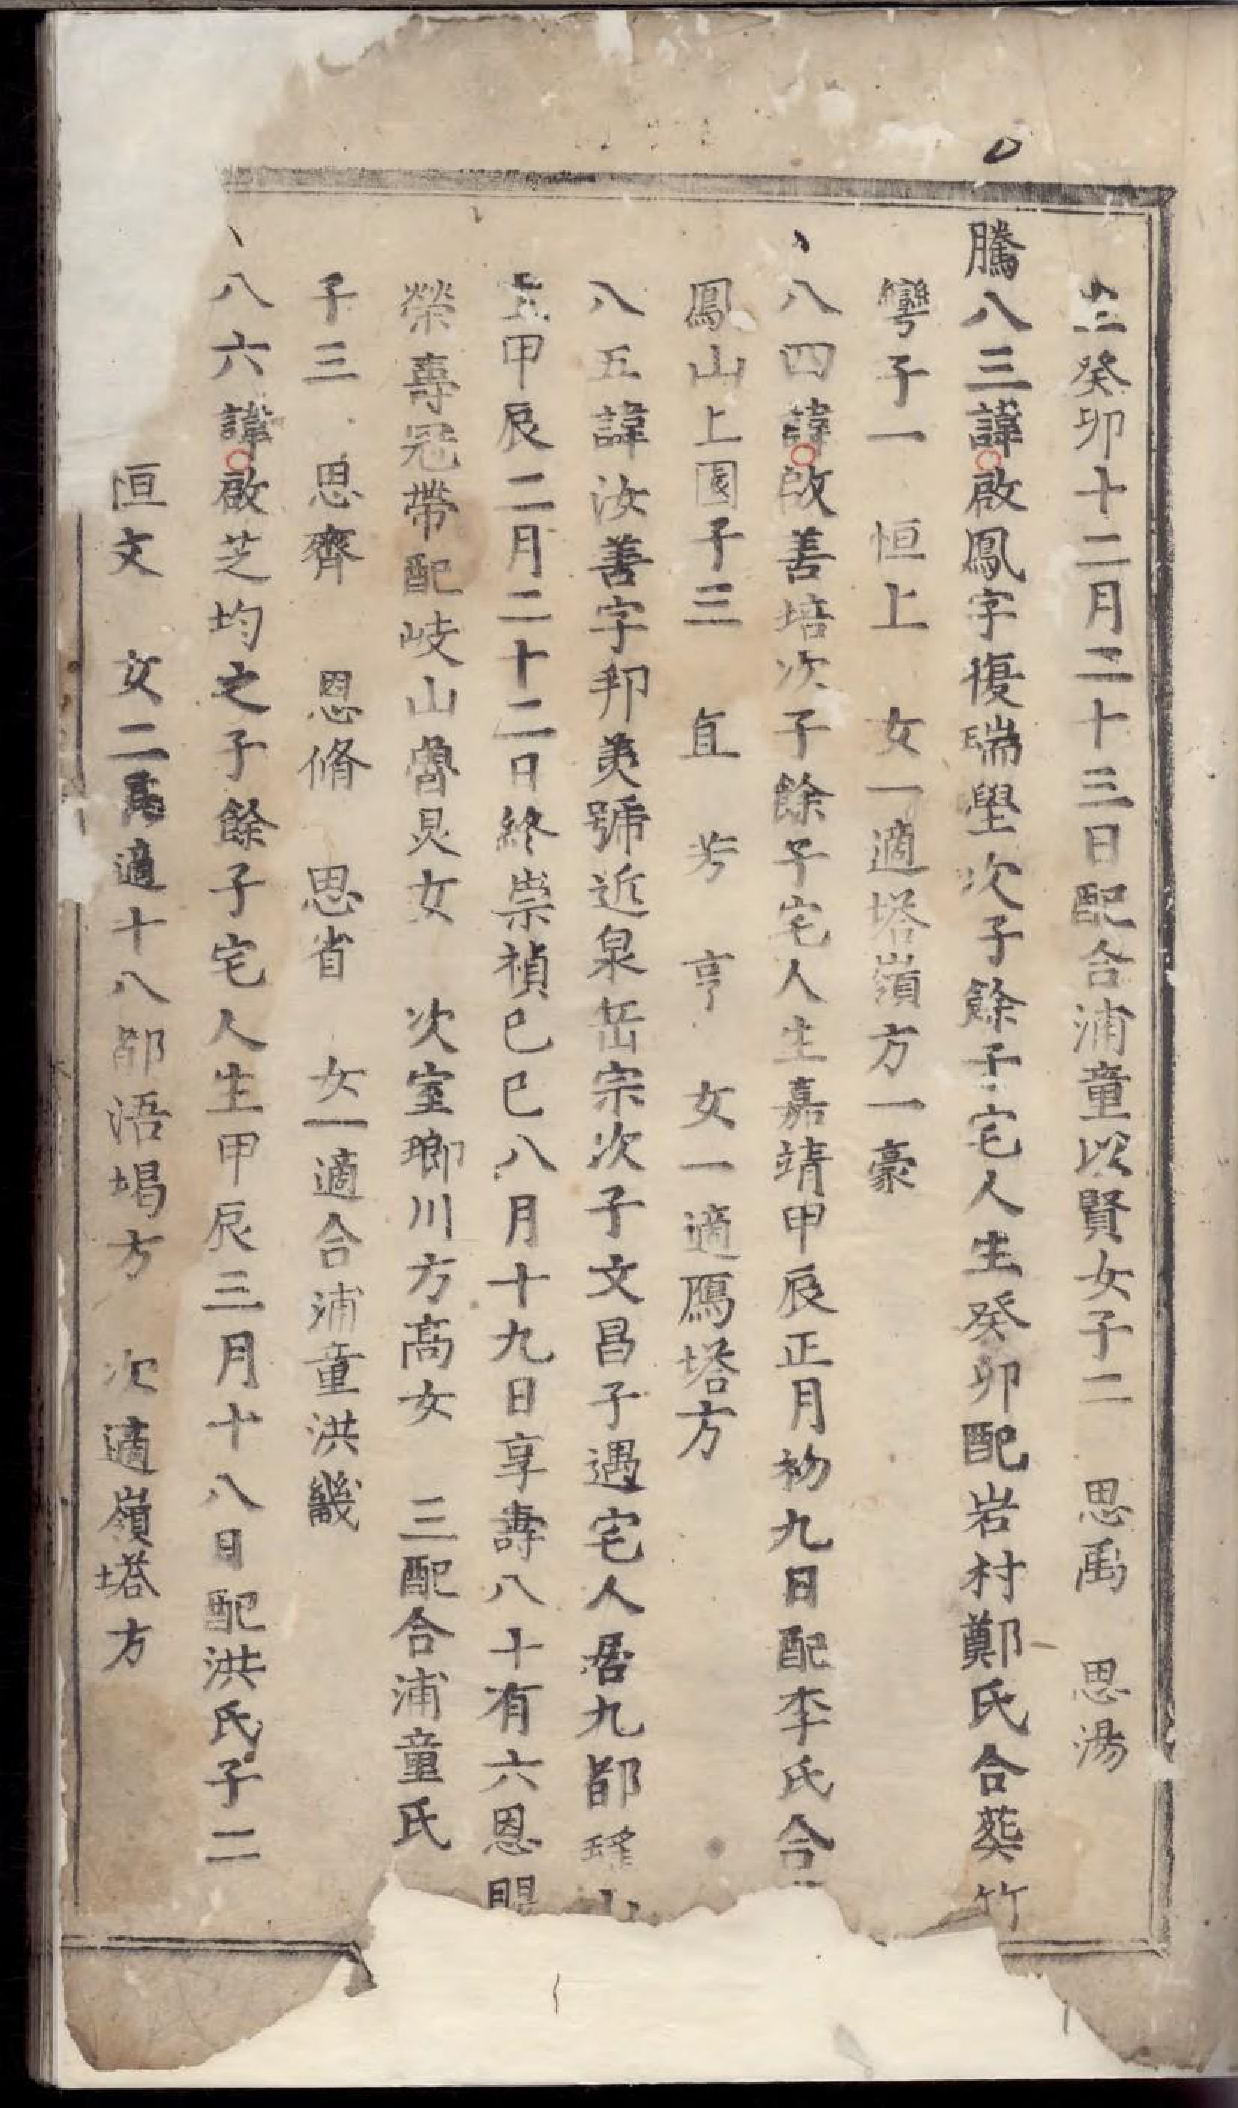 生癸卯十二月二十三日配合浦童以賢女子二 思禹 思湯
騰八三諱啟鳳字復瑞壆次子餘子宅人生癸卯配岩村鄭氏合葬竹
彎子一 恒上 女一適塔嶺方一豪
八四諱啟善培次子餘子宅人生嘉靖甲辰正月初九日配李氏合
鳳山上園子三 直 芳 亨 女一適鴈塔方
八五諱汝善字邦美號近泉岳宗次子文昌子遇宅人居九都瑤山
甲辰二月二十二日終崇禎己巳八月十九日享壽八十有六恩賜
榮壽冠帶配岐山魯炅女 次室瑯川方高女 三配合浦童氏
子三 思齊 思脩 思省 女一適合浦童洪畿
八六諱啟芝均之子餘子宅人生甲辰三月十八日配洪氏子二
恒文 女二長適十八都浯堨方 次適嶺塔方